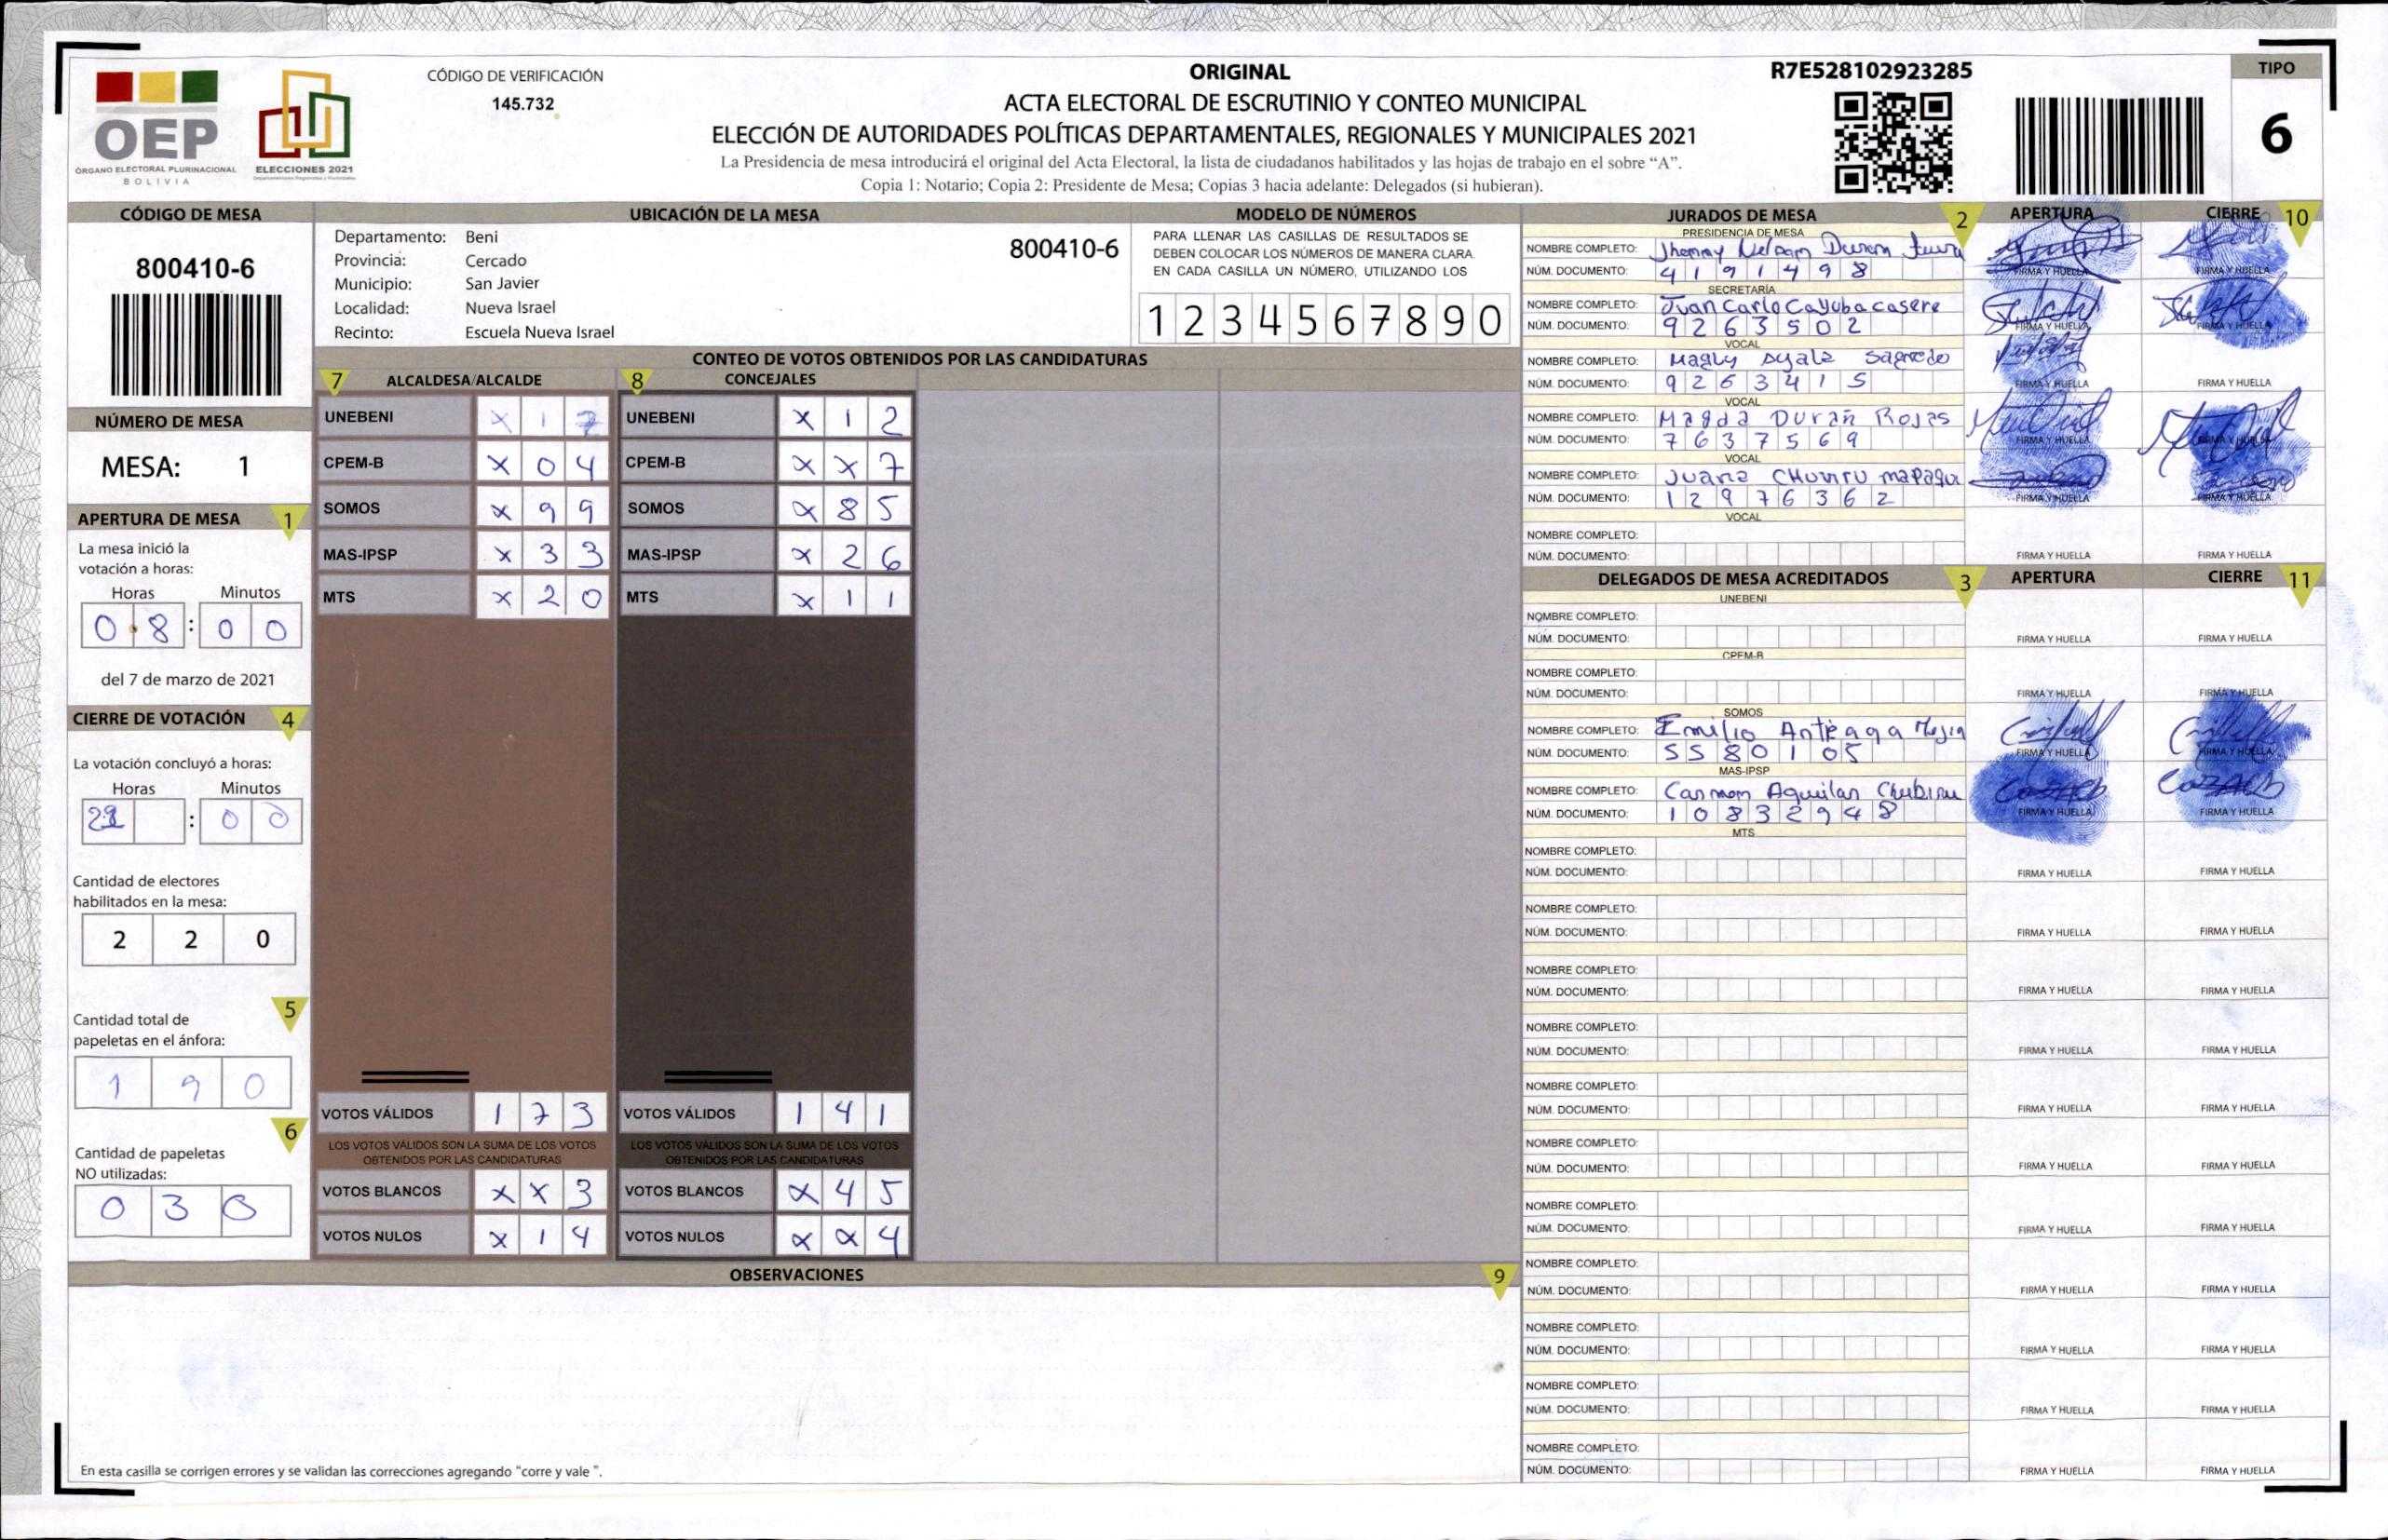 OEP
ÓRGANO ELECTORAL PLURINACIONAL
BOLIVIA
ELECCIONES 2021
CÓDIGO DE VERIFICACIÓN
145.732
ORIGINAL
ACTA ELECTORAL DE ESCRUTINIO Y CONTEO MUNICIPAL
ELECCIÓN DE AUTORIDADES POLÍTICAS DEPARTAMENTALES, REGIONALES Y MUNICIPALES 2021
La Presidencia de mesa introducirá el original del Acta Electoral, la lista de ciudadanos habilitados y las hojas de trabajo en el sobre “A”.
Copia 1: Notario; Copia 2: Presidente de Mesa; Copias 3 hacia adelante: Delegados (si hubieran).
R7E528102923285
TIPO
6
CÓDIGO DE MESA
800410-6
NÚMERO DE MESA
MESA: 1
APERTURA DE MESA 1
La mesa inició la
votación a horas:
Horas Minutos
0 8 : 0 0
del 7 de marzo de 2021
CIERRE DE VOTACIÓN 4
La votación concluyó a horas:
Horas Minutos
: 0 0
Cantidad de electores
habilitados en la mesa:
2 2 0
5
Cantidad total de
papeletas en el ánfora:
1 9 0
6
Cantidad de papeletas
NO utilizadas:
0 3 0
UBICACIÓN DE LA MESA
Departamento: Beni
Provincia: Cercado
Municipio: San Javier
Localidad: Nueva Israel
Recinto: Escuela Nueva Israel
800410-6
MODELO DE NÚMEROS
PARA LLENAR LAS CASILLAS DE RESULTADOS SE
DEBEN COLOCAR LOS NÚMEROS DE MANERA CLARA.
EN CADA CASILLA UN NÚMERO, UTILIZANDO LOS
1 2 3 4 5 6 7 8 9 0
CONTEO DE VOTOS OBTENIDOS POR LAS CANDIDATURAS
7 ALCALDESA/ALCALDE
UNEBENI X 1 7
CPEM-B X 0 4
SOMOS X 9 9
MAS-IPSP X 3 3
MTS X 2 0
VOTOS VÁLIDOS 1 7 3
LOS VOTOS VÁLIDOS SON LA SUMA DE LOS VOTOS
OBTENIDOS POR LAS CANDIDATURAS
VOTOS BLANCOS X X 3
VOTOS NULOS X 1 4
8 CONCEJALES
UNEBENI X 1 2
CPEM-B X X 7
SOMOS X 8 5
MAS-IPSP X 2 6
MTS X 1 1
VOTOS VÁLIDOS 1 4 1
LOS VOTOS VÁLIDOS SON LA SUMA DE LOS VOTOS
OBTENIDOS POR LAS CANDIDATURAS
VOTOS BLANCOS X 4 5
VOTOS NULOS X X 4
OBSERVACIONES 9
En esta casilla se corrigen errores y se validan las correcciones agregando "corre y vale ".
JURADOS DE MESA 2 APERTURA CIERRE 10
PRESIDENCIA DE MESA
NOMBRE COMPLETO: Jhonny Nelson Duran
NÚM. DOCUMENTO: 4 1 9 1 4 9 8 FIRMA Y HUELLA FIRMA Y HUELLA
SECRETARÍA
NOMBRE COMPLETO: Juan Carlo Cayuba casere
NÚM. DOCUMENTO: 9 2 6 3 5 0 2 FIRMA Y HUELLA FIRMA Y HUELLA
VOCAL
NOMBRE COMPLETO: Magly Ayala Sagredo
NÚM. DOCUMENTO: 9 2 6 3 4 1 5 FIRMA Y HUELLA FIRMA Y HUELLA
VOCAL
NOMBRE COMPLETO: Magda Durán Rojas
NÚM. DOCUMENTO: 7 6 3 7 5 6 9 FIRMA Y HUELLA FIRMA Y HUELLA
VOCAL
NOMBRE COMPLETO: Juana
NÚM. DOCUMENTO: 1 2 9 7 6 3 6 2 FIRMA Y HUELLA FIRMA Y HUELLA
VOCAL
NOMBRE COMPLETO:
NÚM. DOCUMENTO: FIRMA Y HUELLA FIRMA Y HUELLA
DELEGADOS DE MESA ACREDITADOS 3 APERTURA CIERRE 11
UNEBENI
NOMBRE COMPLETO:
NÚM. DOCUMENTO: FIRMA Y HUELLA FIRMA Y HUELLA
CPEM-B
NOMBRE COMPLETO:
NÚM. DOCUMENTO: FIRMA Y HUELLA FIRMA Y HUELLA
SOMOS
NOMBRE COMPLETO: Emilio Anteaga Mejia
NÚM. DOCUMENTO: 5 5 8 0 1 0 5 FIRMA Y HUELLA FIRMA Y HUELLA
MAS-IPSP
NOMBRE COMPLETO: Carmen Aguilar
NÚM. DOCUMENTO: 1 0 8 3 2 9 4 8 FIRMA Y HUELLA FIRMA Y HUELLA
MTS
NOMBRE COMPLETO:
NÚM. DOCUMENTO: FIRMA Y HUELLA FIRMA Y HUELLA
NOMBRE COMPLETO:
NÚM. DOCUMENTO: FIRMA Y HUELLA FIRMA Y HUELLA
NOMBRE COMPLETO:
NÚM. DOCUMENTO: FIRMA Y HUELLA FIRMA Y HUELLA
NOMBRE COMPLETO:
NÚM. DOCUMENTO: FIRMA Y HUELLA FIRMA Y HUELLA
NOMBRE COMPLETO:
NÚM. DOCUMENTO: FIRMA Y HUELLA FIRMA Y HUELLA
NOMBRE COMPLETO:
NÚM. DOCUMENTO: FIRMA Y HUELLA FIRMA Y HUELLA
NOMBRE COMPLETO:
NÚM. DOCUMENTO: FIRMA Y HUELLA FIRMA Y HUELLA
NOMBRE COMPLETO:
NÚM. DOCUMENTO: FIRMA Y HUELLA FIRMA Y HUELLA
NOMBRE COMPLETO:
NÚM. DOCUMENTO: FIRMA Y HUELLA FIRMA Y HUELLA
NOMBRE COMPLETO:
NÚM. DOCUMENTO: FIRMA Y HUELLA FIRMA Y HUELLA
NOMBRE COMPLETO:
NÚM. DOCUMENTO: FIRMA Y HUELLA FIRMA Y HUELLA